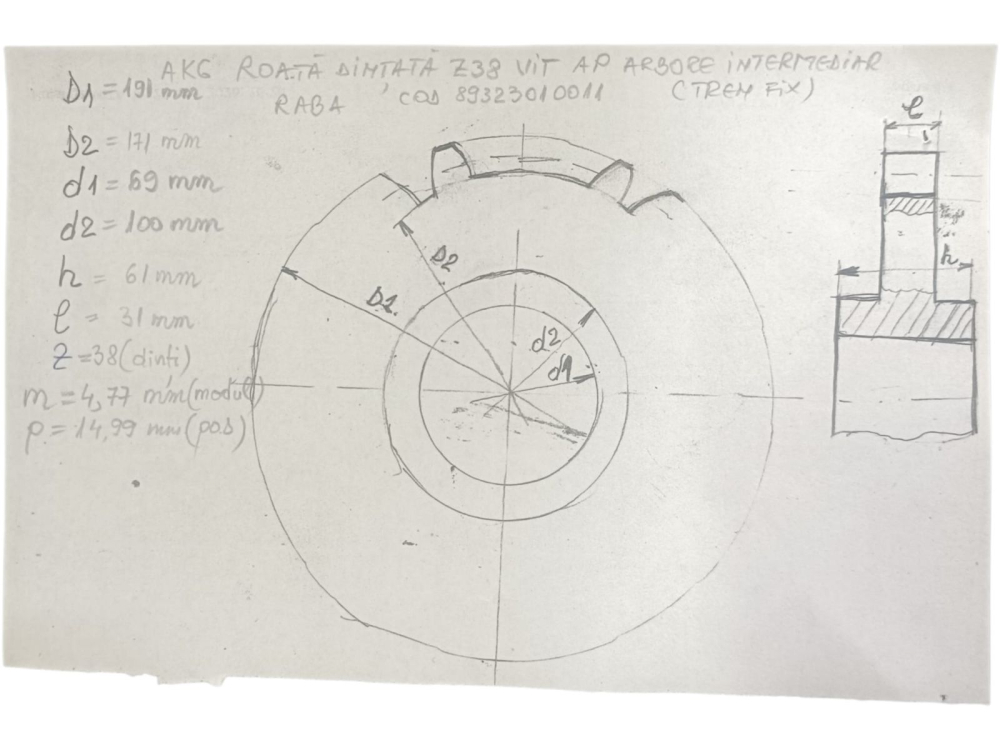 AKG ROATĂ DINTATĂ Z38 VIT AP ARBORE INTERMEDIAR
RABA COD 89323010011 (TREM FIX)
D1 = 191 mm
D2 = 171 mm
d1 = 69 mm
d2 = 100 mm
h = 61 mm
l = 31 mm
Z = 38 (dinti)
m = 4,77 mm (modul)
p. = 14,99 mm (pas)
l
h
D2
D1.
d2
d1